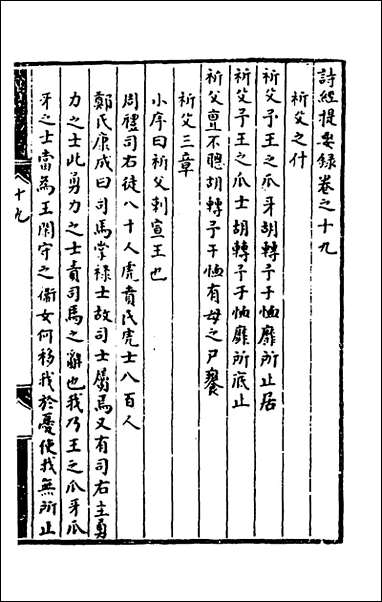 詩經提要錄卷之十九
祈父之什
祈父予王之爪牙胡轉予于恤靡所止居
祈父予王之爪士胡轉予于恤靡所底止
祈父亶不聰胡轉予于恤有母之尸饔
祈父三章
小序曰祈父刺宣王也
周禮司右徒八十人虎賁氏虎士八百人
鄭氏康成曰司馬掌祿士故司士屬焉又有司右主勇
力之士此勇力之士責司馬之辭也我乃王之爪牙爪
牙之士當為王閑守之衛女何移我於憂使我無所止
十九